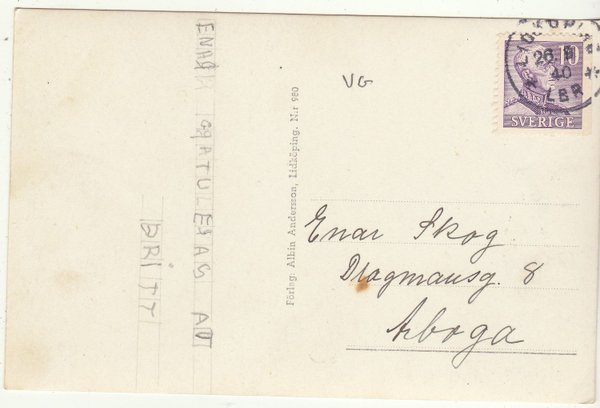 ENAR GRATULERAS AV
BRITT
Förlag. Albin Andersson, Lidköping. N:r 980
VG
LIDKÖPING
26 8
40
LBR
10
SVERIGE
Enar Skog
Dragmansg. 8
Arboga